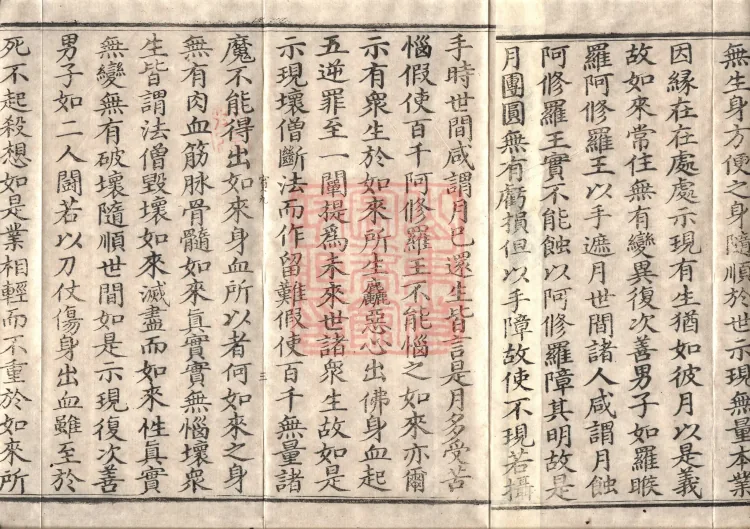 無生身方便之身隨順於世示現無量本業
因緣在在處處示現有生猶如彼月以是義
故如來常住無有變異復次善男子如羅睺
羅阿修羅王以手遮月世間諸人咸謂月蝕
阿修羅王實不能蝕以阿修羅障其明故是
月團圓無有虧損但以手障故使不現若攝
手時世間咸謂月已還生皆言是月多受苦
惱假使百千阿修羅王不能惱之如來亦爾
示有衆生於如來所生麤惡心出佛身血起
五逆罪至一闡提爲未來世諸衆生故如是
示現壞僧斷法而作留難假使百千無量諸
魔不能得出如來身血所以者何如來之身
無有肉血筋脉骨髓如來眞實實無惱壞衆
生皆謂法僧毀壞如來滅盡而如來性眞實
無變無有破壞隨順世間如是示現復次善
男子如二人鬪若以刀仗傷身出血雖至於
死不起殺想如是業相輕而不重於如來所